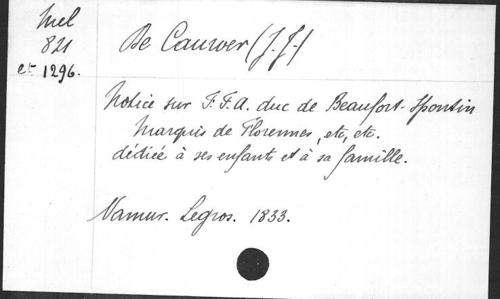 Mel
821
et 1296.
De Cauwer (J. J.)
Notice sur F. F. A. duc de Beaufort-Spontin
Marquis de Florennes, etc, etc.
dédiée à ses enfants et à sa famille.
Namur. Legros. 1833.